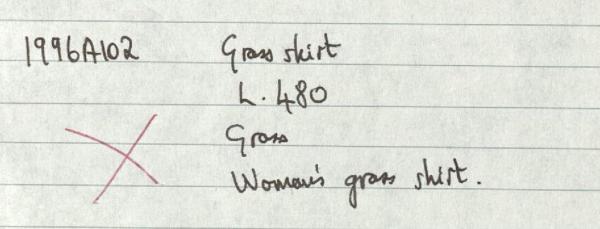 1996A102 Grass skirt
L. 480
Grass
Woman's grass skirt.